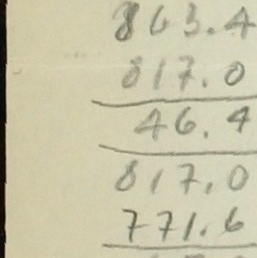 863.4
817.0
46.4
817.0
771.6